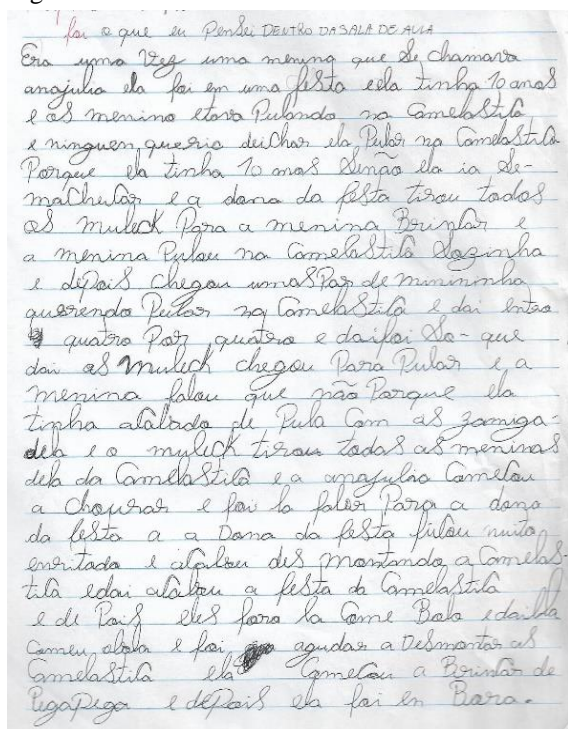 foi o que eu Pensei DENTRO DA SALA DE AULA
Era uma Vez uma menina que Se chamava
anajulia ela foi em uma festa e ela tinha 10 anos
e os menino etava Pulando na Camelastica
e ninguen queria deichar ela Pular na Camelastica
Porque ela tinha 10 anos Senão ela ia Se-
machucar e a dona da festa tirou todos
os muleck Para a menina Brincar e
a menina Pulou na Camelastica Sozinha
e depois chegou umas Par de menininha
querendo Pular na Camelastica e dai entro
quatro Por quatro e dai foi So-que
dai os muleck chegou Para Pular e a
menina falou que não Porque ela
tinha acabado de Pula Com as zamiga-
dela e o muleck tirou todas as meninas
dela da Camelastica e a anajulia Comecou
a chourar e foi la falar Para a dona
da festa a a Dona da festa ficou muito
enritada e acabou des montando a Camelas-
tica e dai acabou a festa da Camelastica
e de Pais eles foro la Come Bolo e dai ela
comeu obolo e foi agudar a Desmontar as
Camelastica ela Comecou a Brincar de
PegaPega e depois ela foi en Bora.